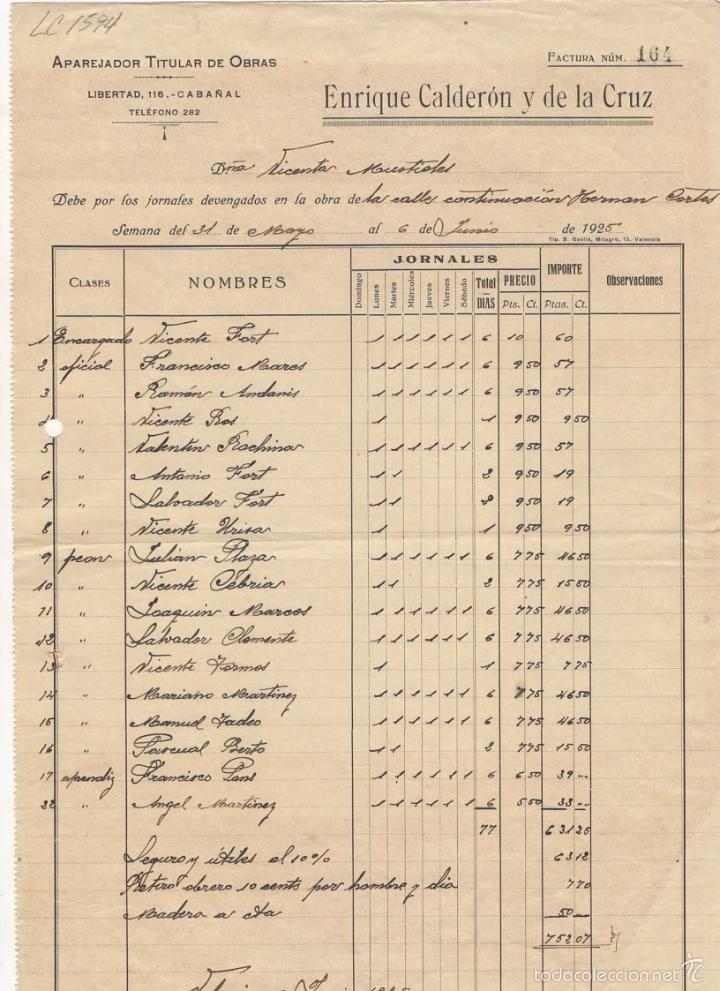 LC 1594
APAREJADOR TITULAR DE OBRAS
LIBERTAD, 116.-CABAÑAL
TELÉFONO 282
FACTURA NÚM. 164
Enrique Calderón y de la Cruz
Dña Vicenta Mustieles
Debe por los jornales devengados en la obra de la calle continuación Hernan Cortes
Semana del 31 de Mayo al 6 de Junio de 1925
Tip. B. Gavilá, Milagro, 15. Valencia
CLASES NOMBRES JORNALES IMPORTE Observaciones
Domingo Lunes Martes Miércoles Jueves Viernes Sábado Total DIAS PRECIO Pts. Ct. Ptas. Ct.
1 Encargado Vicente Fort 1 1 1 1 1 1 6 10 60
2 oficial Francisco Mares 1 1 1 1 1 1 6 9 50 57
3 " Ramón Andanis 1 1 1 1 1 1 6 9 50 57
4 " Vicente Ros 1 1 9 50 9 50
5 " Valentin Rachina 1 1 1 1 1 1 6 9 50 57
6 " Antonio Fort 1 1 2 9 50 19
7 " Salvador Fort 1 1 2 9 50 19
8 " Vicente 1 1 9 50 9 50
9 peon Julian Plaza 1 1 1 1 1 1 6 7 75 46 50
10 " Vicente Cebria 1 1 2 7 75 15 50
11 " Joaquin Marcos 1 1 1 1 1 1 6 7 75 46 50
12 " Salvador Clemente 1 1 1 1 1 1 6 7 75 46 50
13 " Vicente Formos 1 1 7 75 7 75
14 " Mariano Martinez 1 1 1 1 1 1 6 7 75 46 50
15 " Manuel Tadeo 1 1 1 1 1 1 6 7 75 46 50
16 " Pascual Berto 1 1 2 7 75 15 50
17 apendiz Francisco Pons 1 1 1 1 1 1 6 6 50 39 "
" Angel Martinez 1 1 1 1 1 1 6 5 50 33 "
77 631 25
Seguro y útiles el 10% 63 12
Retiro obrero 10 cents por hombre y dia 7 70
Madera a cta 50
752 07
1925
todocoleccion.net